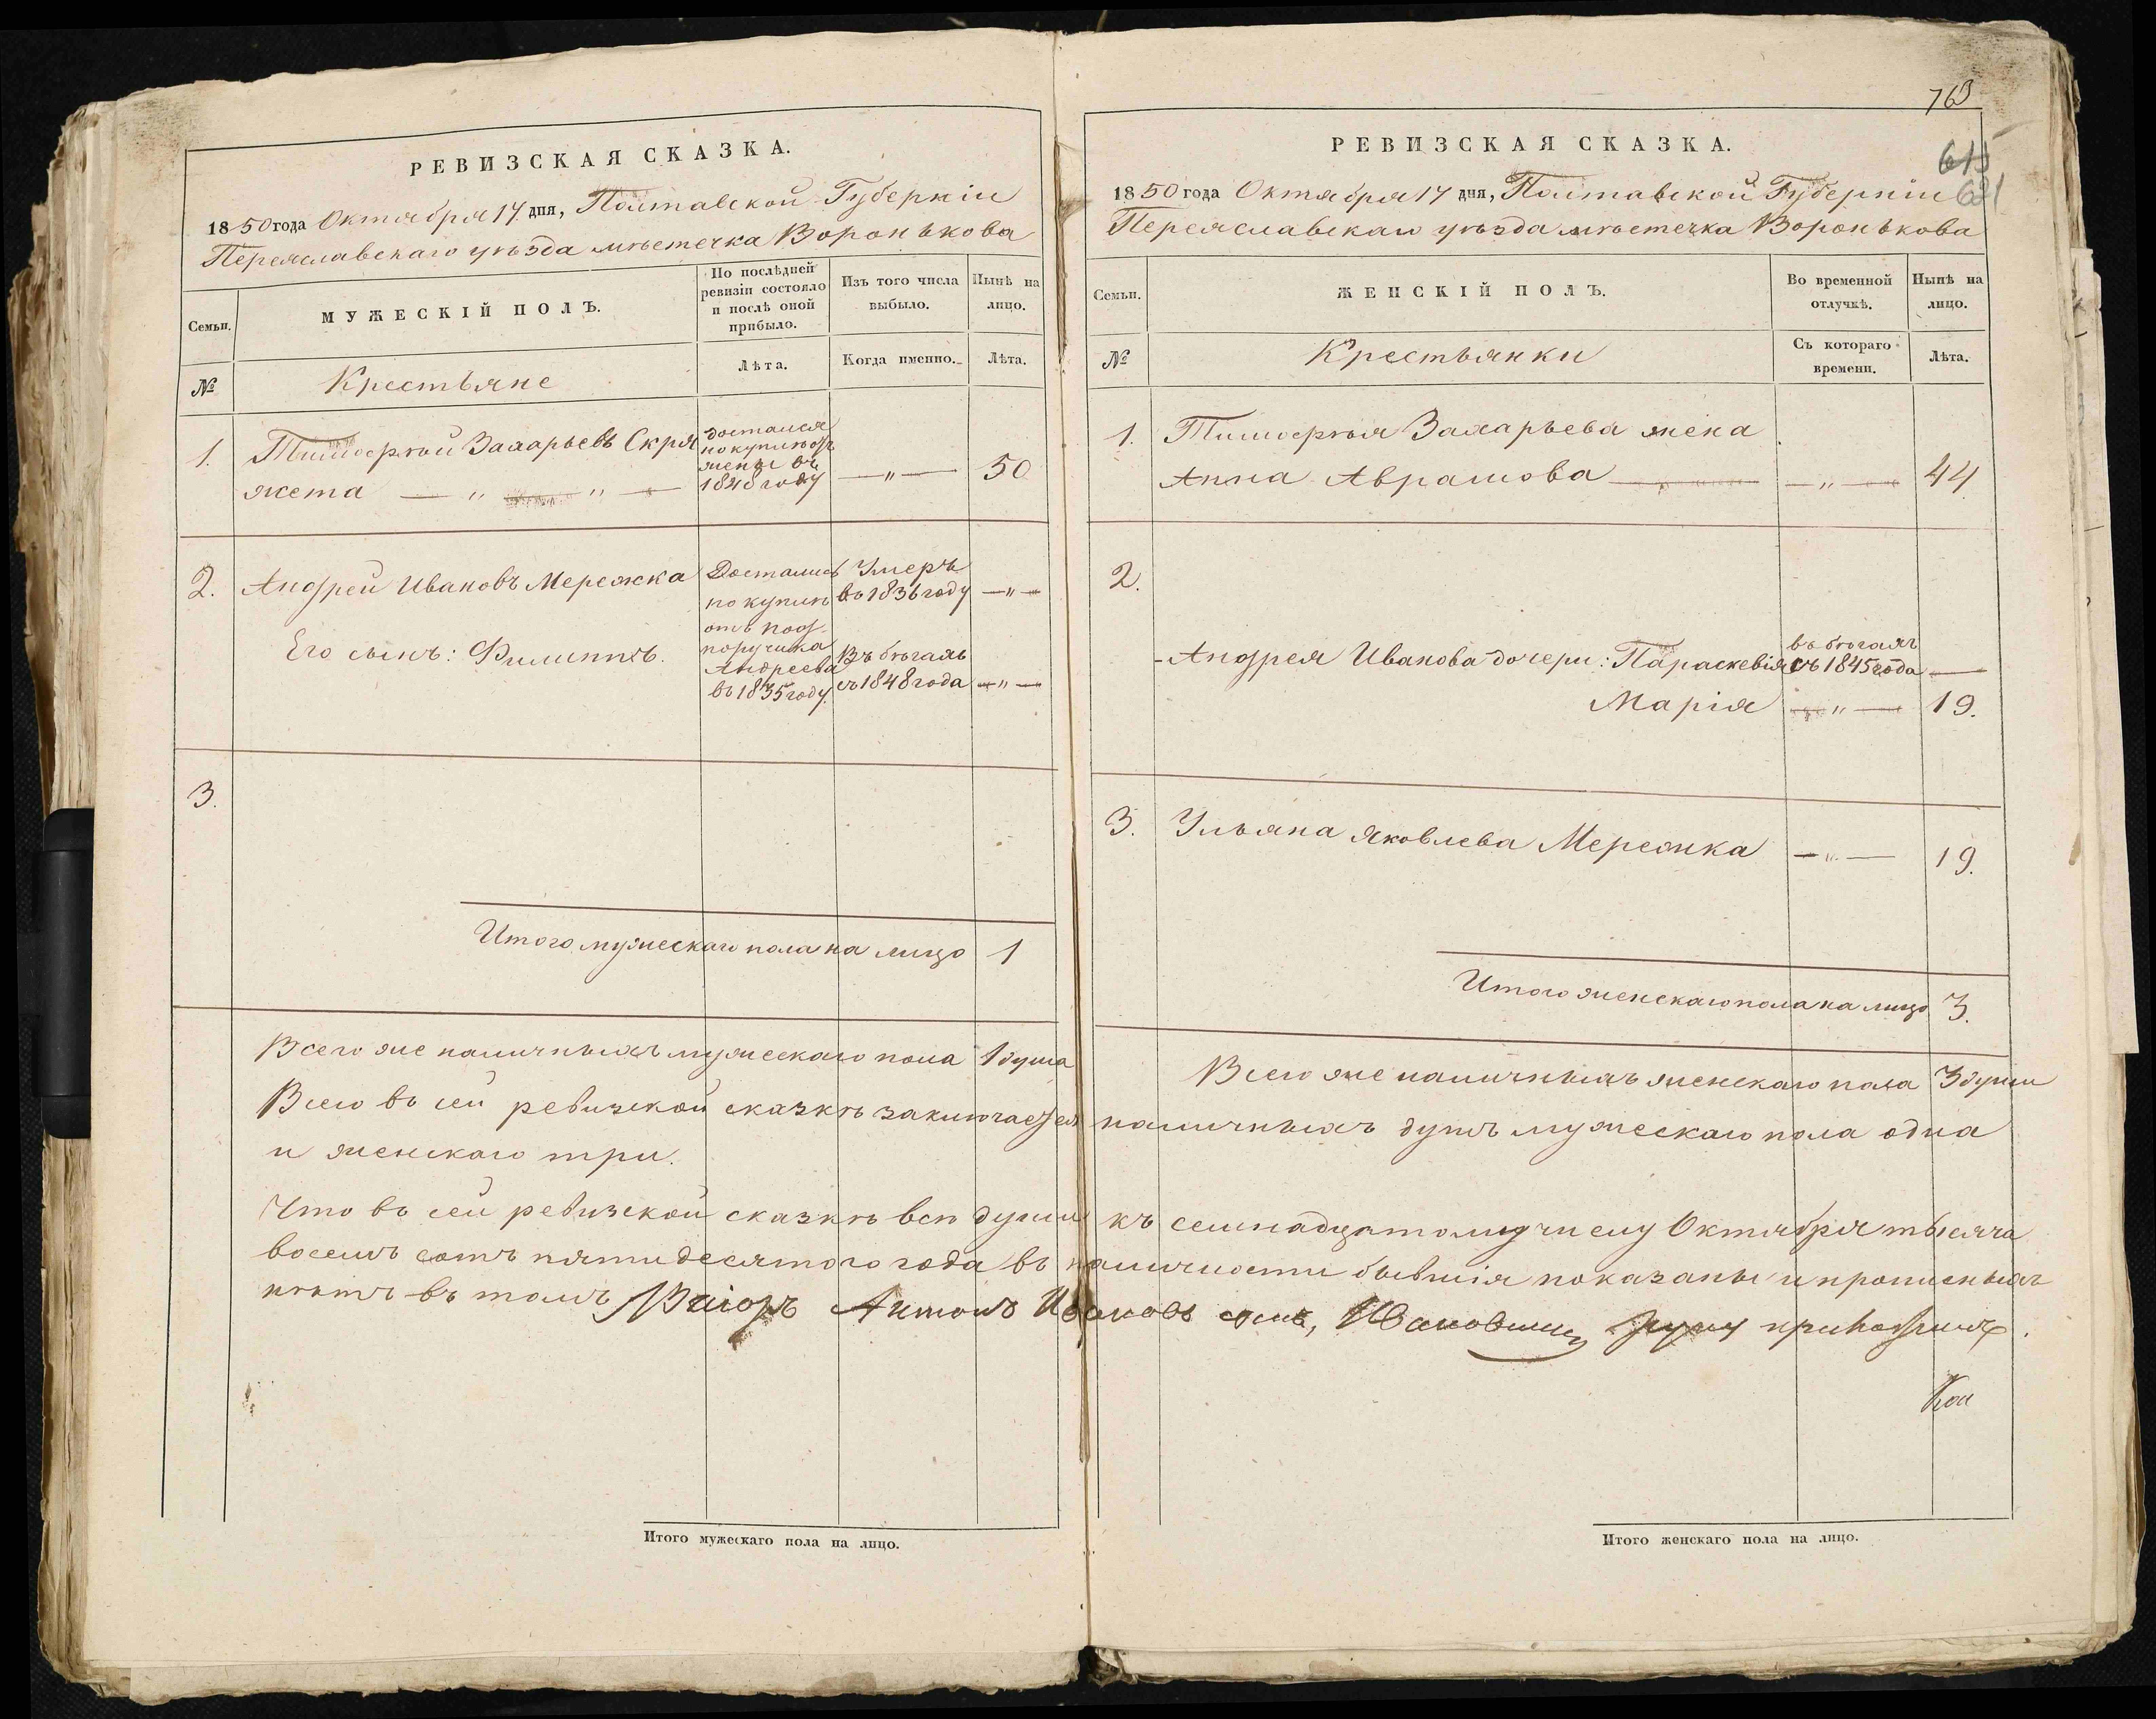 РЕВИЗСКАЯ СКАЗКА.
1850 года Октября 17 дня, Полтавской Губерніи
Переяславскаго уѣзда мѣстечка Воронькова
Семьи.
МУЖЕСКІЙ ПОЛЪ.
По послѣдней
ревизіи состояло
и послѣ оной
прибыло.
Изъ того числа
выбыло.
Нынѣ на
лицо.
№
Крестьяне
Лѣта.
Когда именно.
Лѣта.
1.
Тимофѣй Захарьевъ Скря
жета — " — " —
достался
по купли отъ
жены въ
1848 году
— " —
50
2.
Андрей Ивановъ Мережка
Его сынъ: Филиппъ.
Достались
по купли
отъ под-
поручика
Андреева
въ 1835 году.
Умеръ
въ 1836 году
— " —
Въ бѣгахъ
съ 1848 года
— " —
3.
Итого мужескаго пола на лицо 1
Всего же наличныхъ мужескаго пола 1 душа
763
615
681
РЕВИЗСКАЯ СКАЗКА.
1850 года Октября 17 дня, Полтавской Губерніи
Переяславскаго уѣзда мѣстечка Воронькова
Семьи.
ЖЕНСКІЙ ПОЛЪ.
Во временной
отлучкѣ.
Нынѣ на
лицо.
№
Крестьянки
Съ котораго
времени.
Лѣта.
1.
Тимофѣя Захарьева жена
Анна Аврамова — " — 44
2.
Андрея Иванова дочери: Параскевія
въ бѣгахъ
съ 1845 года —
Марія — " — 19.
3.
Ульяна Яковлева Мережка — " — 19.
Итого женскаго пола на лицо 3.
Всего же наличныхъ женскаго пола 3 души
Всего въ сей ревизской сказкѣ заключается наличныхъ душъ мужескаго пола одна
и женскаго три.
Что въ сей ревизской сказкѣ всѣ души къ семнадцатому числу Октября тысяча
восемь сотъ пятидесятого года въ наличности бывшія показаны и прописныхъ
нѣтъ въ томъ Маіоръ Антонъ Ивановъ сынъ, руку приложилъ.
Кол
Итого мужескаго пола на лицо.
Итого женскаго пола на лицо.